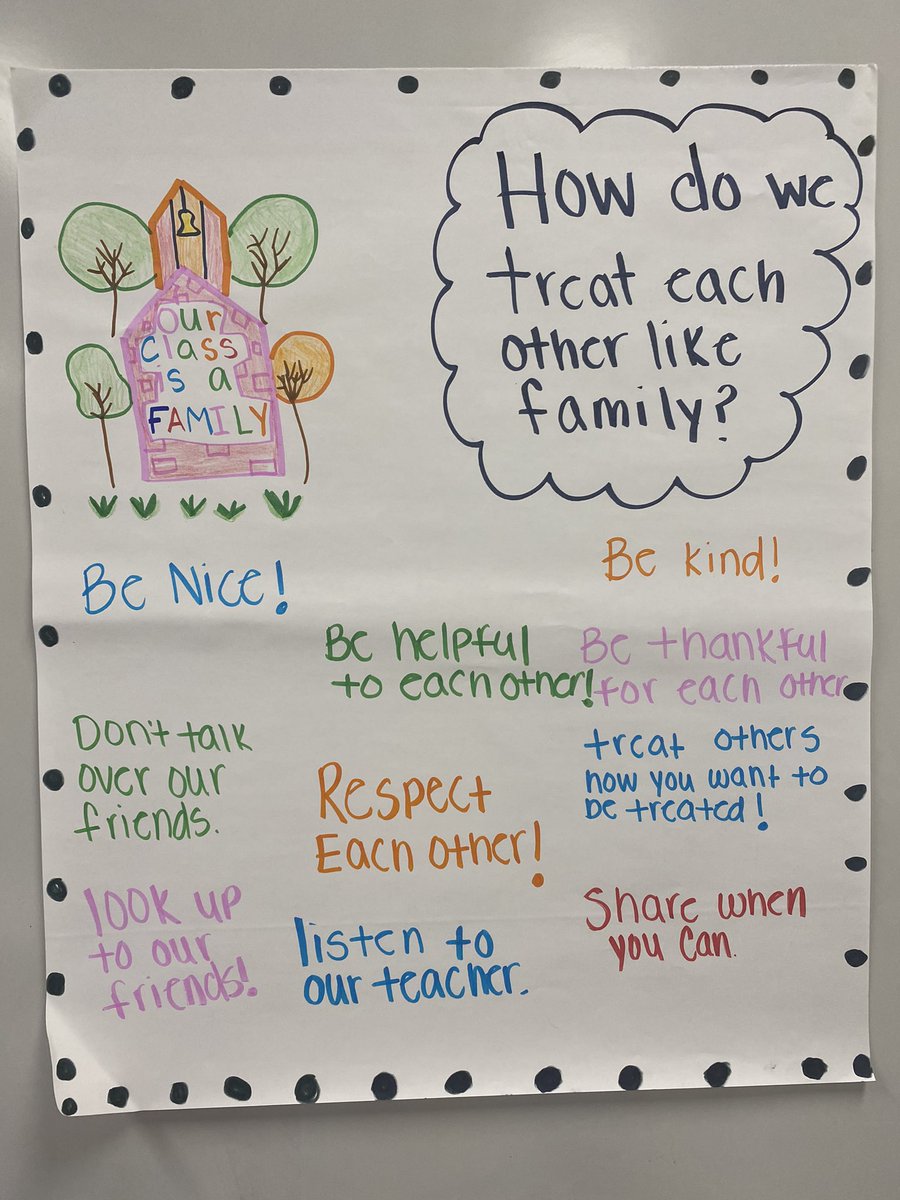 Our
class
is a
FAMILY
How do we
treat each
other like
family?
Be Nice!
Be kind!
Be helpful
to each other!
Be thankful
for each other
Don't talk
over our
friends.
Respect
Each other!
treat others
how you want to
be treated!
look up
to our
friends!
listen to
our teacher.
Share when
you can.